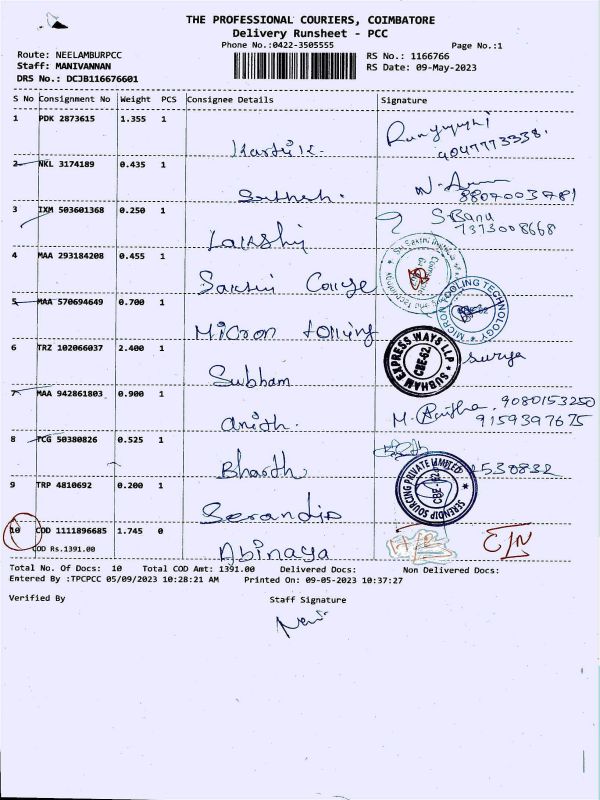 THE PROFESSIONAL COURIERS, COIMBATORE
Delivery Runsheet - PCC
Phone No.:0422-3505555 Page No.:1
Route: NEELAMBURPCC RS No.: 1166766
Staff: MANIVANNAN RS Date: 09-May-2023
DRS No.: DCJB116676601
S No Consignment No Weight PCS Consignee Details Signature
1 PDK 2873615 1.355 1
Kartik 9047773338.
2 NKL 3174189 0.435 1
8807003781
3 IXM 503601368 0.250 1 S Banu
7373008668
4 MAA 293184208 0.455 1
Sakthi College
5 MAA 570694649 0.700 1 MICRON TOOLING TECHNOLOGY
Micron
6 TRZ 102066037 2.400 1 SUBHAM EXPRESS WAYS LLP CBE-62 Surya
Subham
7 MAA 942861803 0.900 1 9080153250
M. 9159397675
8 TCG 50380826 0.525 1
Bharth 530832
9 TRP 4810692 0.200 1 SERENDIP SOURCING PRIVATE LIMITED CBE-62
Serandip
10 COD 1111896685 1.745 0
COD Rs.1391.00 Abinaya
Total No. Of Docs: 10 Total COD Amt: 1391.00 Delivered Docs: Non Delivered Docs:
Entered By :TPCPCC 05/09/2023 10:28:21 AM Printed On: 09-05-2023 10:37:27
Verified By Staff Signature